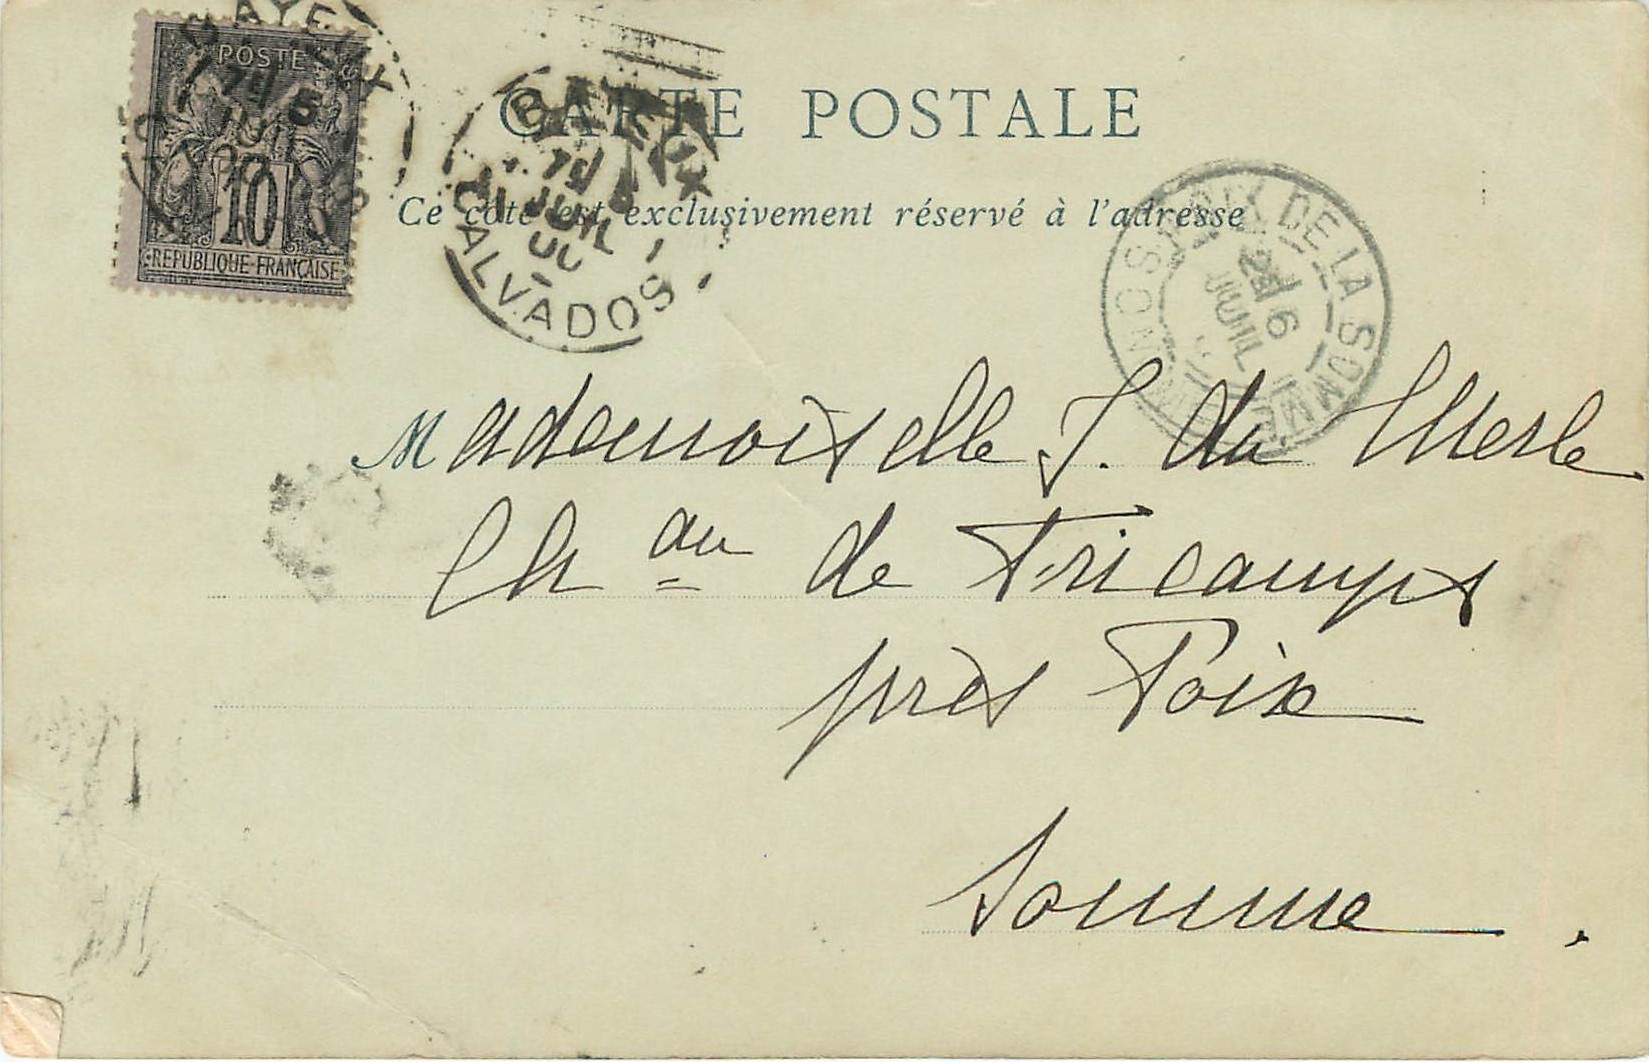 POSTE
10
REPUBLIQUE FRANÇAISE
BAYEUX
BAYEUX
5
JUIL
CALVADOS
CARTE POSTALE
Ce côté est exclusivement réservé à l'adresse
POIX DE LA SOMME
6
JUIL
SOMME
Mademoiselle J. du Merle
Ch au de Fricamps
près Poix
Somme.